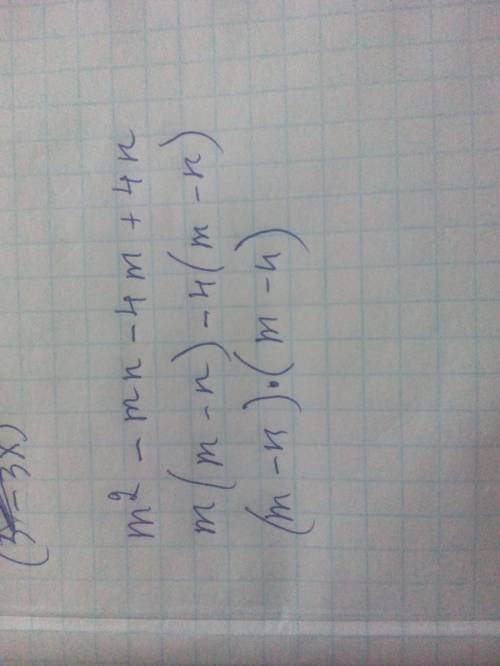 (3 - 3x)
m² - mn - 4m + 4n
m(m - n) - 4(m - n)
(m - n)·(m - 4)